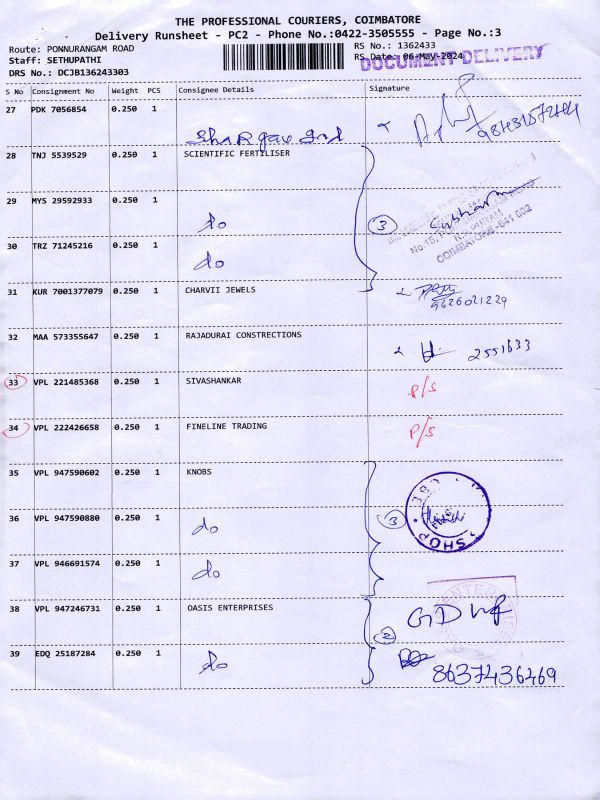 THE PROFESSIONAL COURIERS, COIMBATORE
Delivery Runsheet - PC2 - Phone No.:0422-3505555 - Page No.:3
Route: PONNURANGAM ROAD
RS No.: 1362433
Staff: SETHUPATHI
RS Date: 06-May-2024
DOCUMENT DELIVERY
DRS No.: DCJB136243303
S No Consignment No Weight PCS Consignee Details Signature
27 PDK 7056854 0.250 1
28 TNJ 5539529 0.250 1 SCIENTIFIC FERTILISER
29 MYS 29592933 0.250 1 do
3
COIMBATORE-641 002
30 TRZ 71245216 0.250 1 do
31 KUR 7001377079 0.250 1 CHARVII JEWELS
9626021229
32 MAA 573355647 0.250 1 RAJADURAI CONSTRECTIONS
2551633
33 VPL 221485368 0.250 1 SIVASHANKAR P/S
34 VPL 222426658 0.250 1 FINELINE TRADING P/S
35 VPL 947590602 0.250 1 KNOBS
36 VPL 947590880 0.250 1 do
3
SHOP
37 VPL 946691574 0.250 1 do
38 VPL 947246731 0.250 1 OASIS ENTERPRISES
2
39 EDQ 25187284 0.250 1 do
8637436469